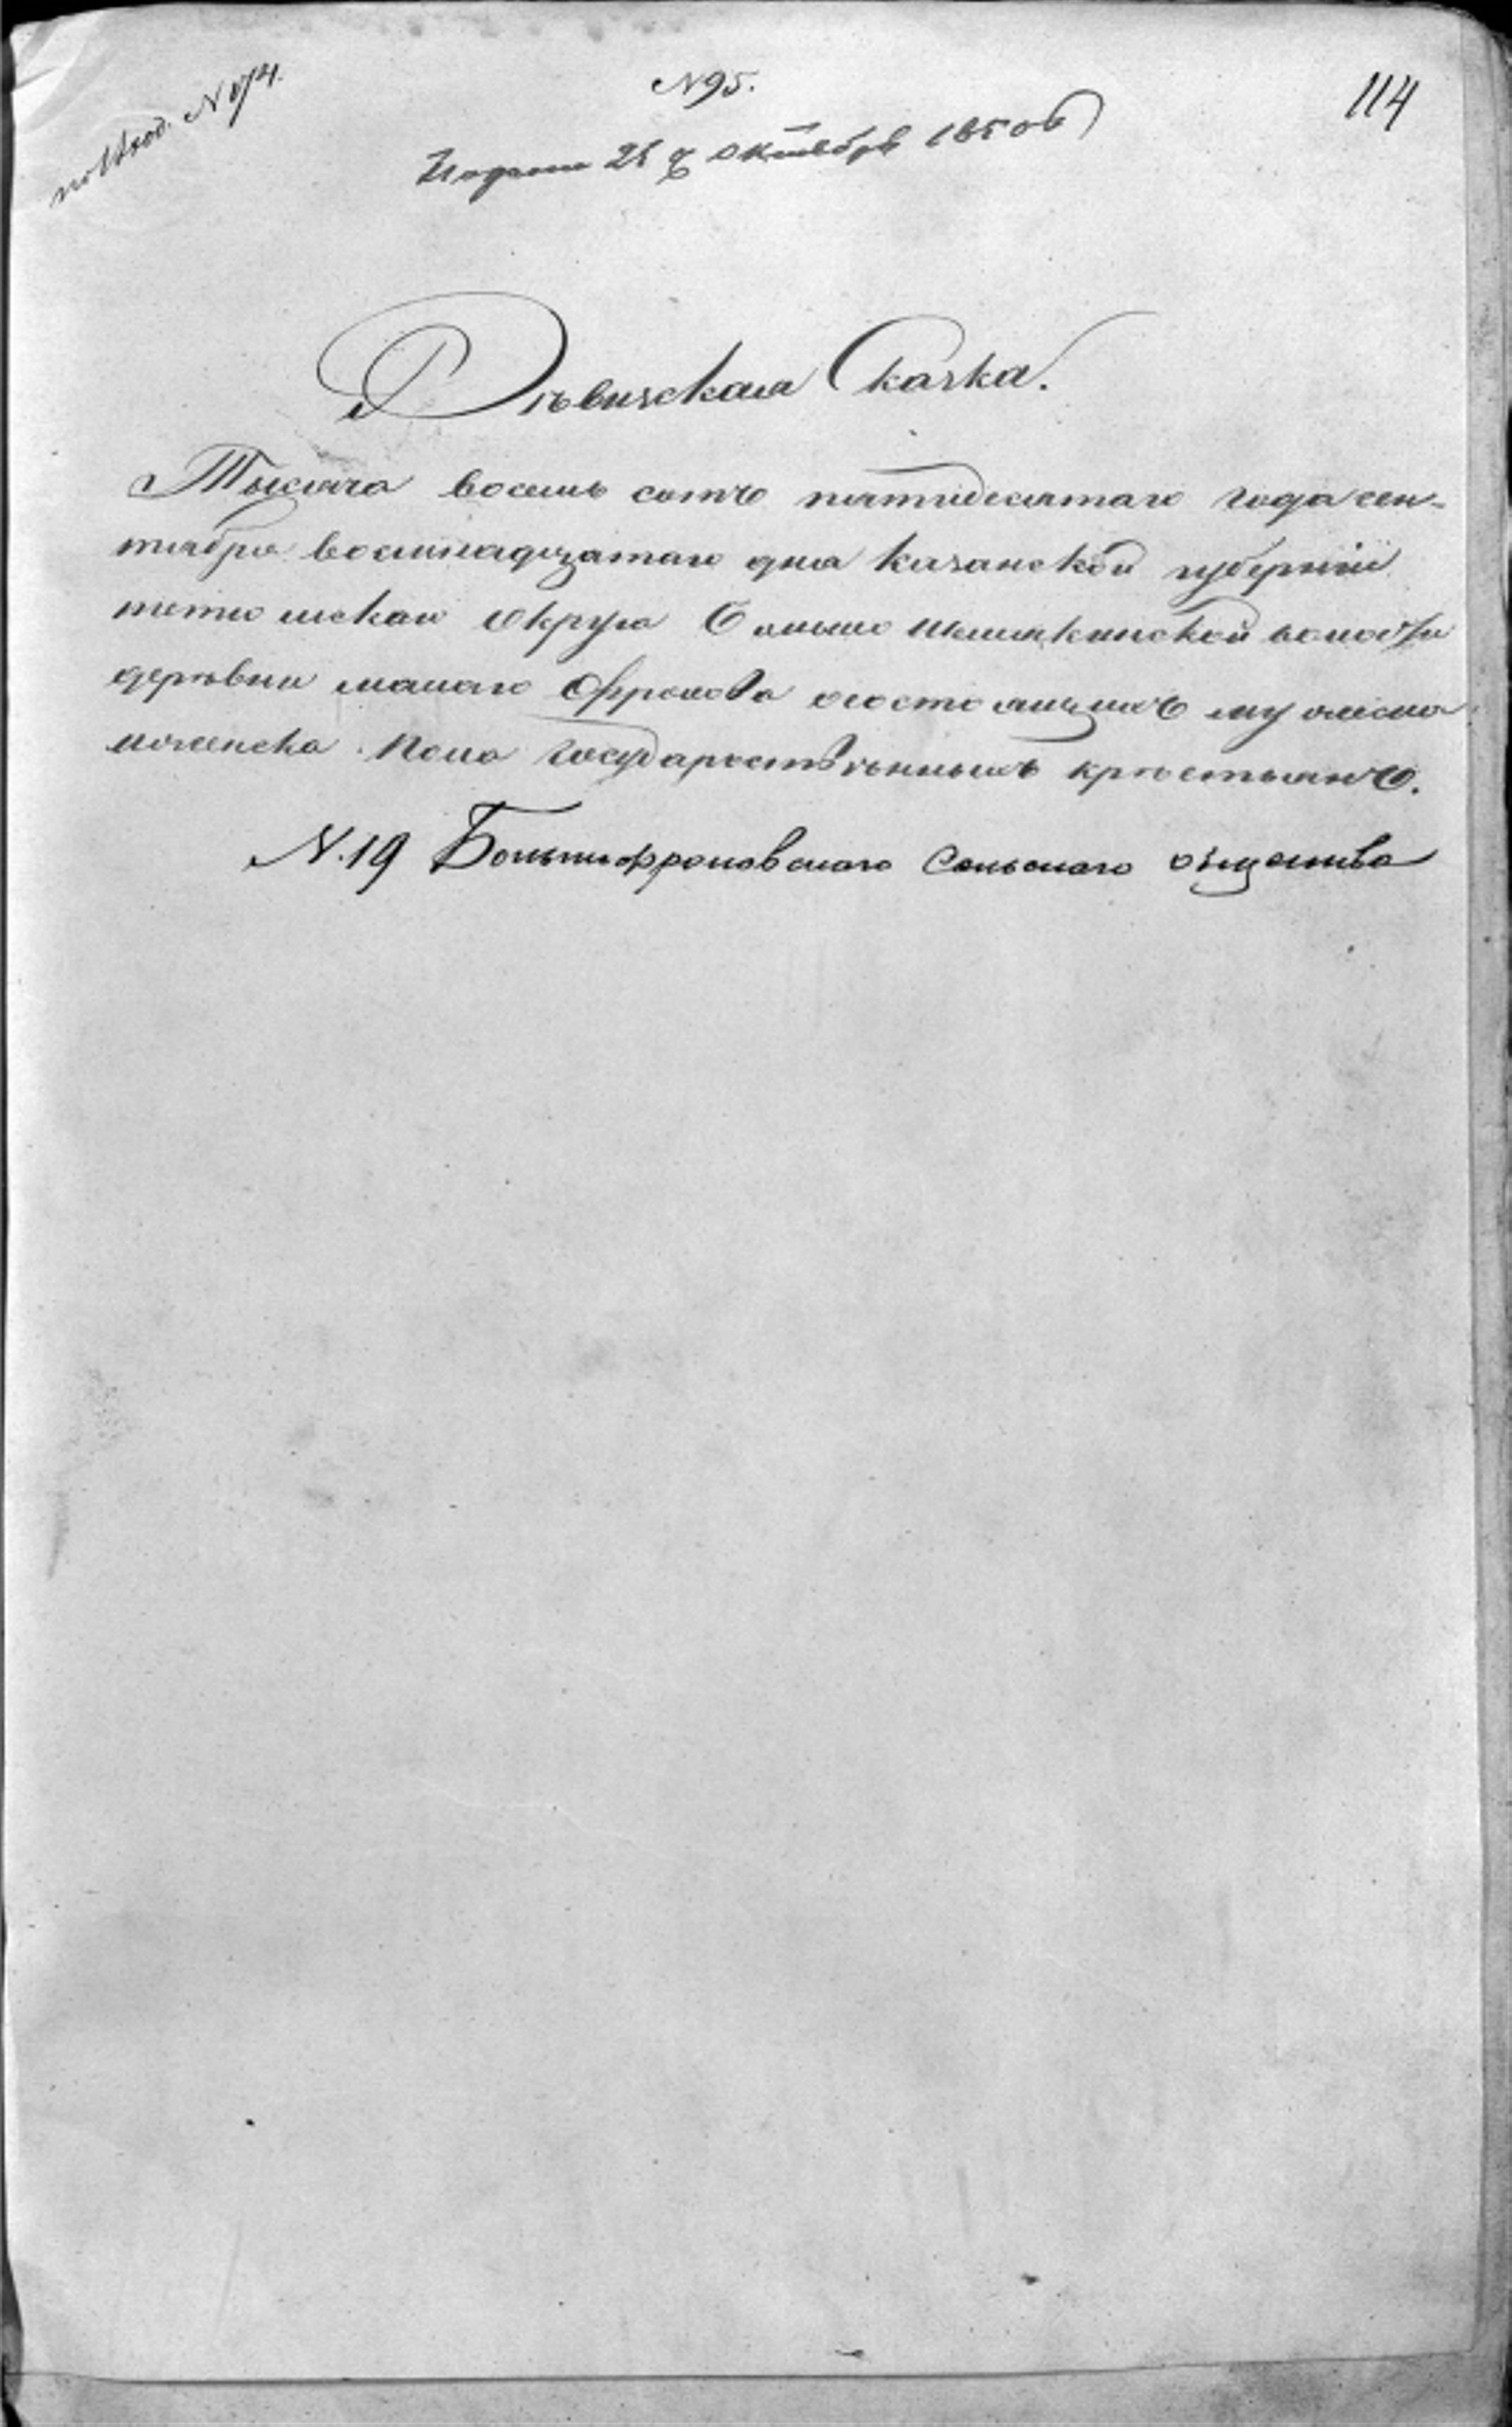 по Уезд. N 174.
N 95.
114
Подана 25 г октября 1850 г
Ревижская Скаска.
Тысяча восемь сотъ пятидесятаго года сен-
тября восемнадцатаго дня казанской губерніи
тетюшскаго округа Больше Шемякинской волости
деревни малаго Фролова о состоящихъ мужеска
и женска пола государственныхъ крестьянъ.
N. 19 Большефроловскаго Сельскаго общества